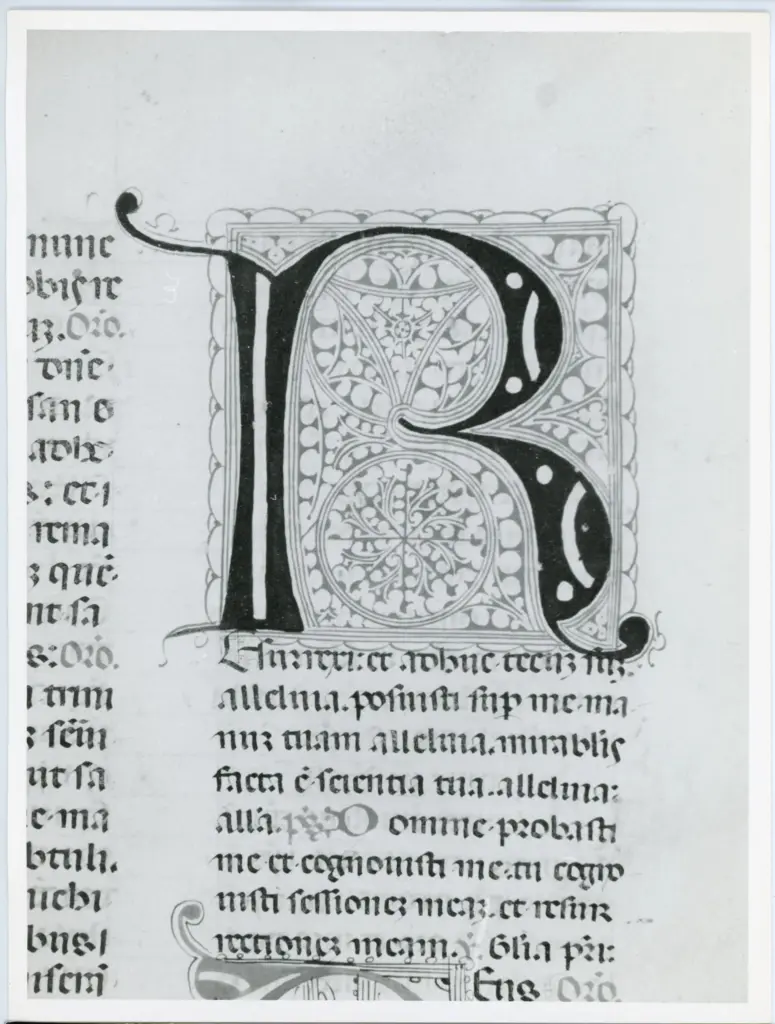 nunc
Oro.
dñe
s: et i
z que
nt sa
s: Oro.
ut sa
e ma
btuli.
michi
R
Esurrexi: et adhuc tecuz suz.
alleluia. posuisti sup me ma
nuz tuam alleluia. mirabilis
facta ē scientia tua. alleluia:
alla. ps. Domine probasti
me et cognouisti me. tu cogno
uisti sessionez meaz. et resur
rectionez meam. Glia pri:
Eus Oro.